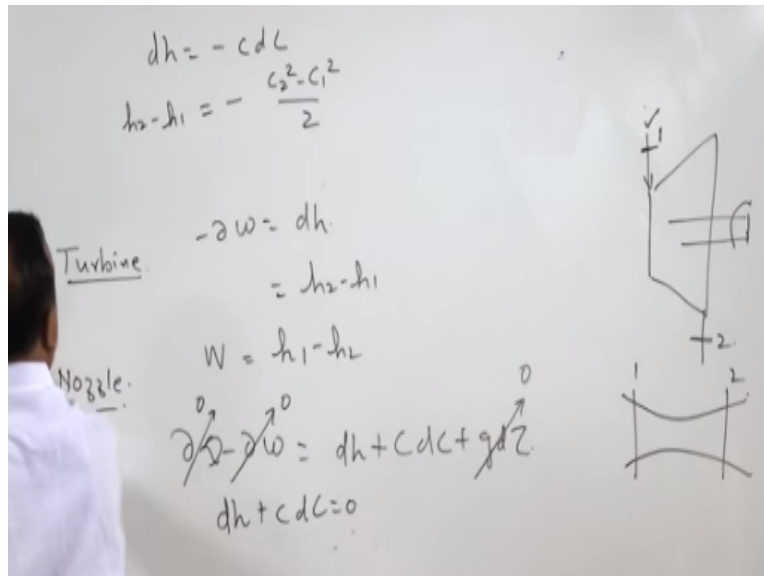 dh = - cdc
h₂-h₁ = - (c₂²-c₁²)/2
Turbine.
-∂w = dh.
= h₂-h₁
W = h₁-h₂
Nozzle.
0 0 0
∂Q - ∂w = dh + cdc + gdz.
dh + cdc = 0
1
2.
1 2